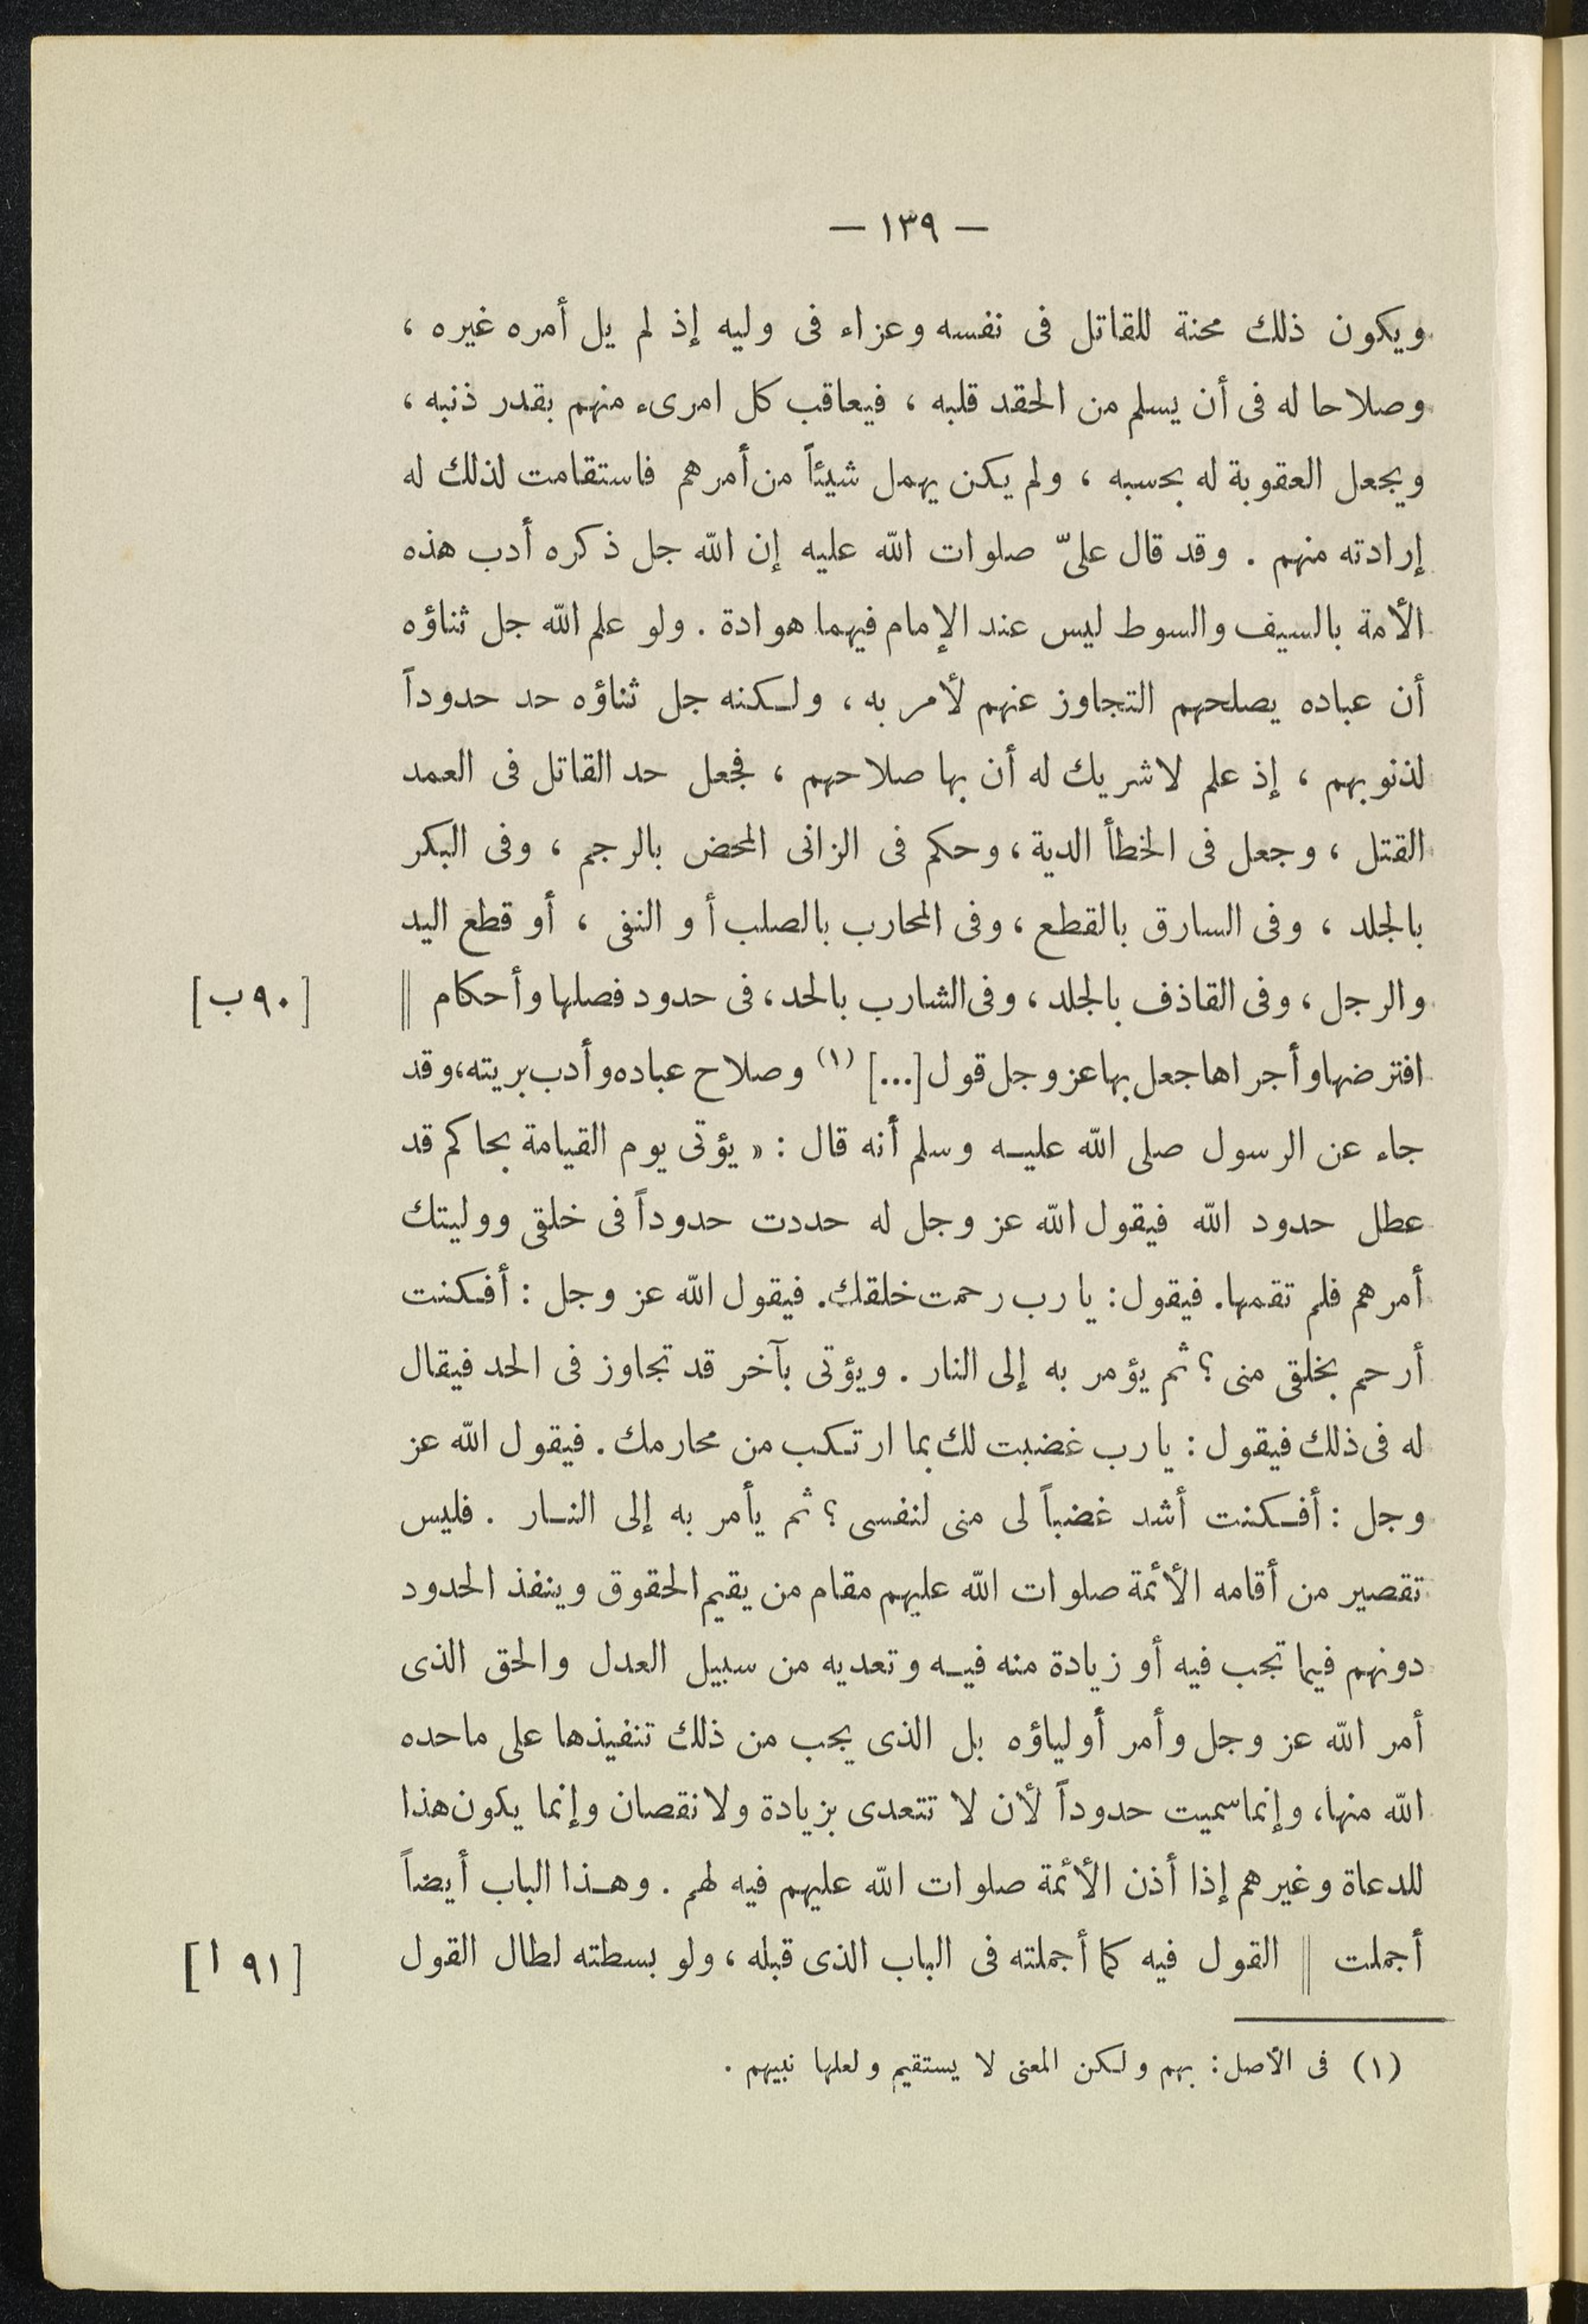 — ١٣٩ —
ويكون ذلك محنة للقاتل فى نفسه وعزاء فى وليه إذ لم يل أمره غيره ،
وصلاحا له فى أن يسلم من الحقد قلبه ، فيعاقب كل امرىء منهم بقدر ذنبه ،
ويجعل العقوبة له بحسبه ، ولم يكن يهمل شيئاً من أمرهم فاستقامت لذلك له
إرادته منهم . وقد قال علىّ صلوات الله عليه إن الله جل ذكره أدب هذه
الأمة بالسيف والسوط ليس عند الإمام فيهما هوادة . ولو علم الله جل ثناؤه
أن عباده يصلحهم التجاوز عنهم لأمر به ، ولكنه جل ثناؤه حد حدوداً
لذنوبهم ، إذ علم لاشريك له أن بها صلاحهم ، فجعل حد القاتل فى العمد
القتل ، وجعل فى الخطأ الدية ، وحكم فى الزانى المحض بالرجم ، وفى البكر
بالجلد ، وفى السارق بالقطع ، وفى المحارب بالصلب أو النفى ، أو قطع اليد
والرجل ، وفى القاذف بالجلد ، وفى الشارب بالحد ، فى حدود فصلها وأحكام || [٩٠ب]
افترضها وأجراها جعل بها عز وجل قول [...] (١) وصلاح عباده وأدب بريته، وقد
جاء عن الرسول صلى الله عليه وسلم أنه قال : « يؤتى يوم القيامة بحاكم قد
عطل حدود الله فيقول الله عز وجل له حددت حدوداً فى خلقى ووليتك
أمرهم فلم تقمها. فيقول: يارب رحمت خلقك. فيقول الله عز وجل : أفكنت
أرحم بخلقى منى ؟ ثم يؤمر به إلى النار . ويؤتى بآخر قد تجاوز فى الحد فيقال
له فى ذلك فيقول : يارب غضبت لك بما ارتكب من محارمك . فيقول الله عز
وجل : أفكنت أشد غضباً لى منى لنفسى ؟ ثم يأمر به إلى النار . فليس
تقصير من أقامه الأئمة صلوات الله عليهم مقام من يقيم الحقوق وينفذ الحدود
دونهم فيما تجب فيه أو زيادة منه فيه وتعديه من سبيل العدل والحق الذى
أمر الله عز وجل وأمر أولياؤه بل الذى يجب من ذلك تنفيذها على ماحده
الله منها، وإنما سميت حدوداً لأن لا تتعدى بزيادة ولا نقصان وإنما يكون هذا
للدعاة وغيرهم إذا أذن الأئمة صلوات الله عليهم فيه لهم . وهذا الباب أيضاً
أجملت || القول فيه كما أجملته فى الباب الذى قبله ، ولو بسطته لطال القول [٩١ ا]
(١) فى الأصل: بهم ولكن المعنى لا يستقيم ولعلها نبيهم .